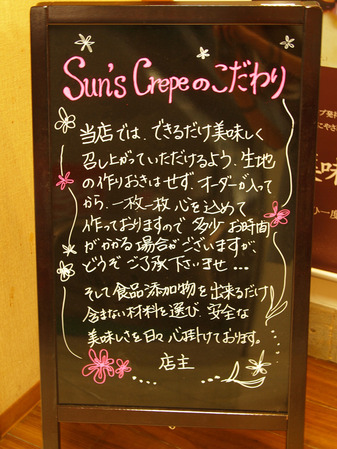 Sun's Crepeのこだわり
当店では、できるだけ美味しく
召し上がっていただけるよう、生地
の作りおきはせず、オーダーが入って
から、一枚一枚 心を込めて
作っておりますので 多少 お時間
がかかる場合がございますが、
どうぞ ご了承下さいませ…
そして食品添加物を出来るだけ
含まない材料を選び、安全な
美味しさを日々心掛けております。
店主